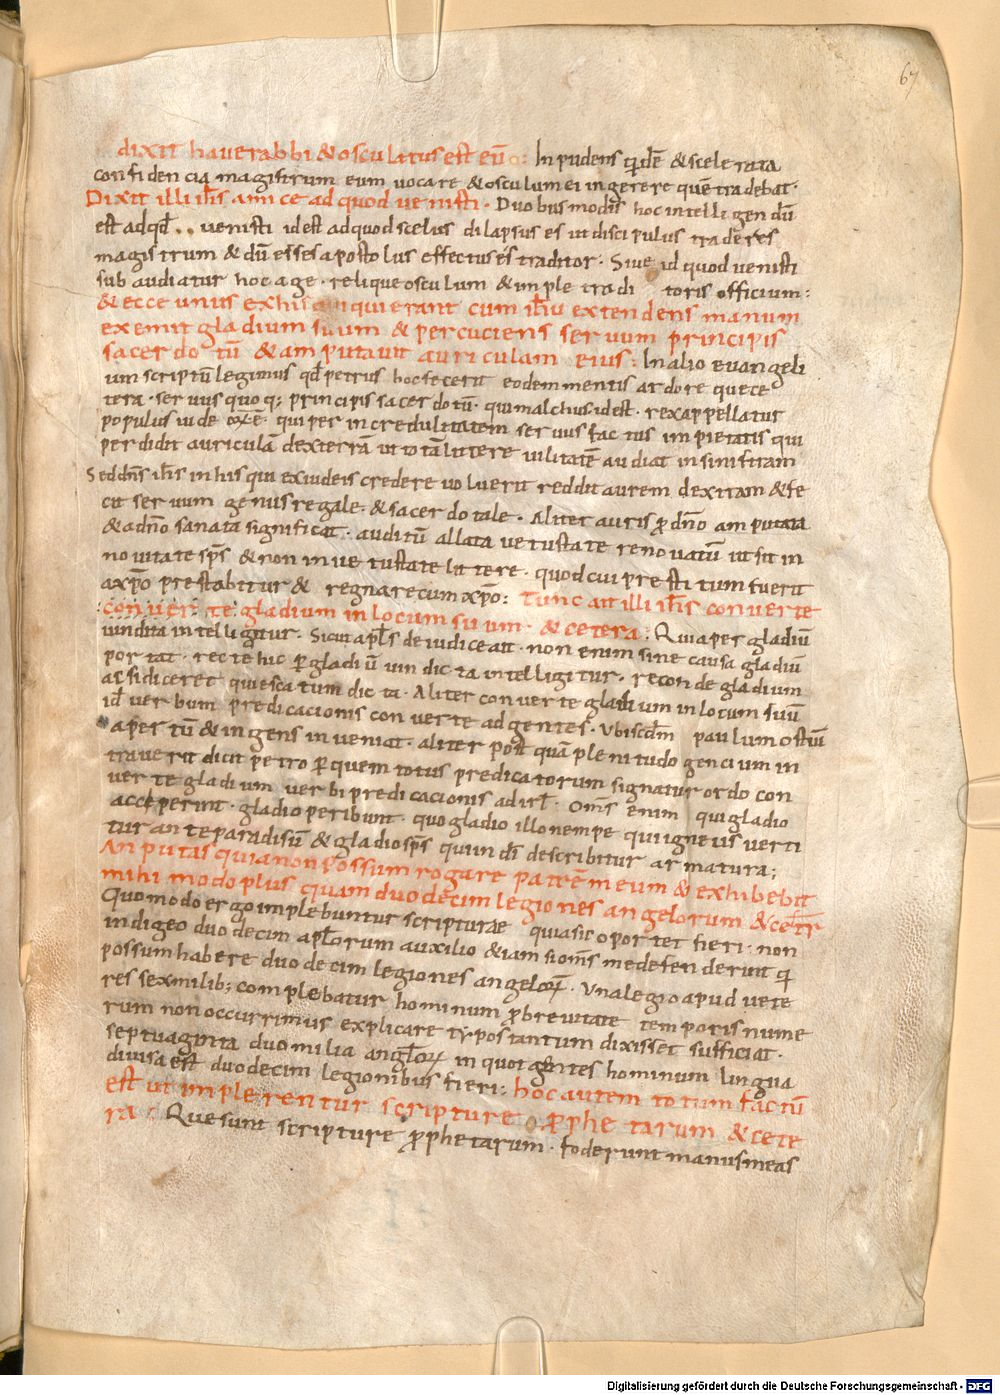 67
dixit haverabbi & osculatus est eū : Inpudens qidē & scelerata
confidencia magistrum eum vocare & osculum ei ingerere quē tradebat ·
Dixit illi ih̄s amice ad quod venisti · Duobus modis hoc intelligendū
est ad qd̄ . . venisti id est ad quod scelus dilapsus es ut discipulus traderes
magistrum & dū esses apostolus effectus es traditor · Sive id quod venisti
subaudiatur hoc age · relique osculum & imple traditoris officium :
& ecce unus ex his qui erant cum ih̄u extendens manum
exemit gladium suum & percuciens servum principis
sacerdotū & amputavit auriculam eius : In alio evangeli
um scriptū legimus qd̄ petrus hoc fecerit eodem mentis ardore que ce
tera · servus quoq; principis sacerdotū · qui malchus id est · rex appellatur
populus iude qui per incredulitatem servus factus impietatis qui
perdidit auriculā dexterā ut totā littere vilitatē audiat in sinistram
Sed dn̄s ih̄s in his qui ex iudeis credere voluerit reddit aurem dextram & fe
cit servum genus regale · & sacerdotale · Aliter auris p̄ dn̄o amputata
& a dn̄o sanata significat · auditū allata vetustate renovatū ut sit in
novitate sp̄s & non in vetustate littere · quod cui prestitum fuerit
a xp̄o prestabitur & regnare cum xp̄o : Tunc ait illi ih̄s converte
converte gladium in locum suum · & cetera : Quia per gladiū
vindicta intelligitur · Sicut apl̄s de iudice ait · non enim sine causa gladiū
portat · recte hic p gladiū vindicta intelligitur · reconde gladium
ac si diceret quiescat vindicta · Aliter converte gladium in locum suū
id̄ verbum predicacionis converte ad gentes · Ubi scdm paulum ostiū
apertū & ingens inveniat · aliter post quā plenitudo gencium in
traverit dicit petro p quem totus predicatorum signatur ordo con
verte gladium verbi predicacionis ad isrl̄ · Om̄s enim qui gladio
acceperint · gladio peribunt · quo gladio illo nempe qui igneus verti
tur ante paradisū & gladio sp̄s qui in dī describitur armatura ;
An putas quia non possum rogare patrē meum & exhibebit
mihi modo plus quam duodecim legiones angelorum & ceter̄
Quomodo ergo implebuntur scripturae quia sic oportet fieri · non
indigeo duodecim apl̄orum auxilio & iam si om̄s me defenderint q
possum habere duodecim legiones angelorꝝ · Una legio apud vete
res sex milib; complebatur hominum p brevitate temporis nume
rum non occurrimus explicare typos tantum dixisset sufficiat ·
septuaginta duo milia anglorꝝ in quot gentes hominum lingua
divisa est duodecim legionibus fieri : hoc autem totum factū
est ut implerentur scripture pphetarum & cete
ra : Que sunt scripture pphetarum · foderunt manus meas
Digitalisierung gefördert durch die Deutsche Forschungsgemeinschaft - DFG